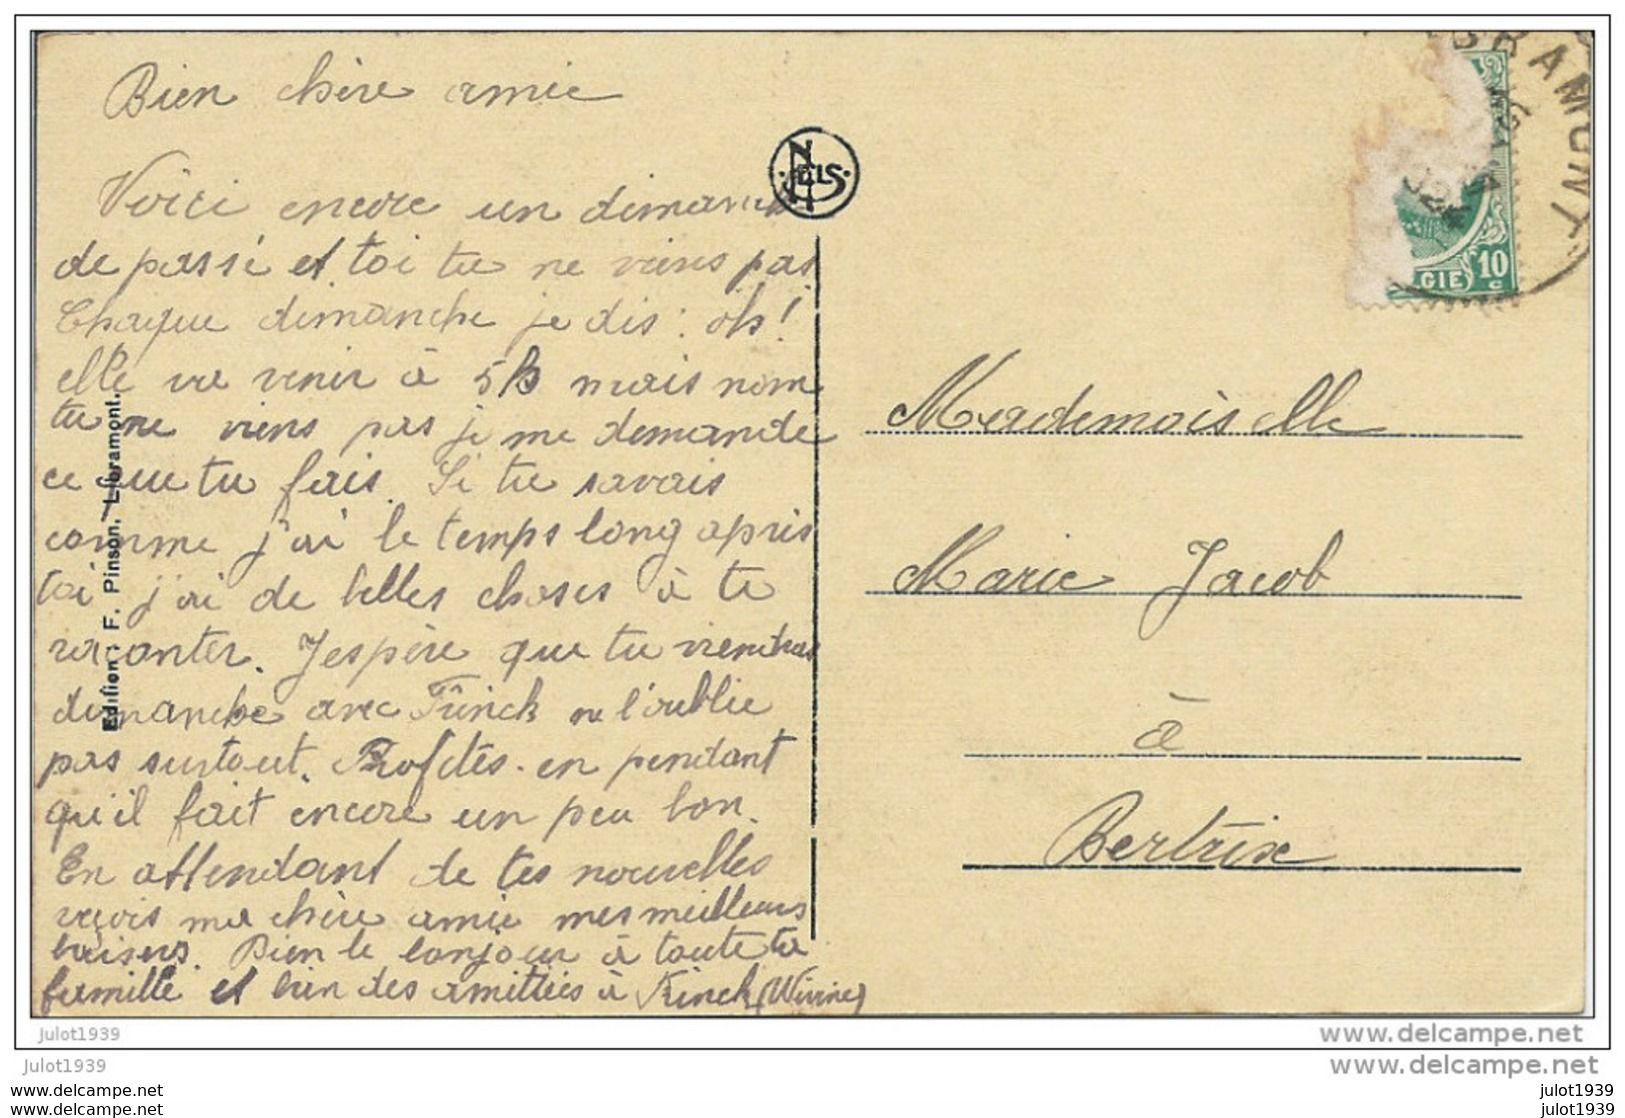 Bien chère amie
Voici encore un dimanche
de passé et toi tu ne viens pas
Chaque dimanche je dis : oh !
elle va venir à 5h mais non
tu ne viens pas je me demande
ce que tu fais. Si tu savais
comme j'ai le temps long après
toi j'ai de belles choses à te
raconter. J'espère que tu viendras
dimanche avec ne l'oublie
pas surtout. Profites-en pendant
qu'il fait encore un peu bon.
En attendant de tes nouvelles
reçois ma chère amie mes meilleurs
baisers. Bien le bonjour à toute ta
famille et bien des amitiés à (Wivine)
Edition : F. Pinson, Libramont.
NELS
LIBRAMONT
GIE 10
c
Mademoiselle
Marie Jacob
à
Bertrix
julot1939
www.delcampe.net
julot1939
www.delcampe.net
www.delcampe.net
julot1939
www.delcampe.net
julot1939